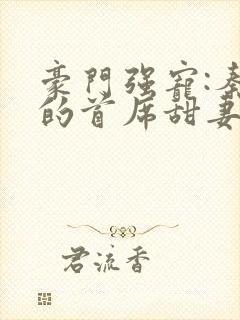 豪門强寵:秦
的首席甜妻
君流香